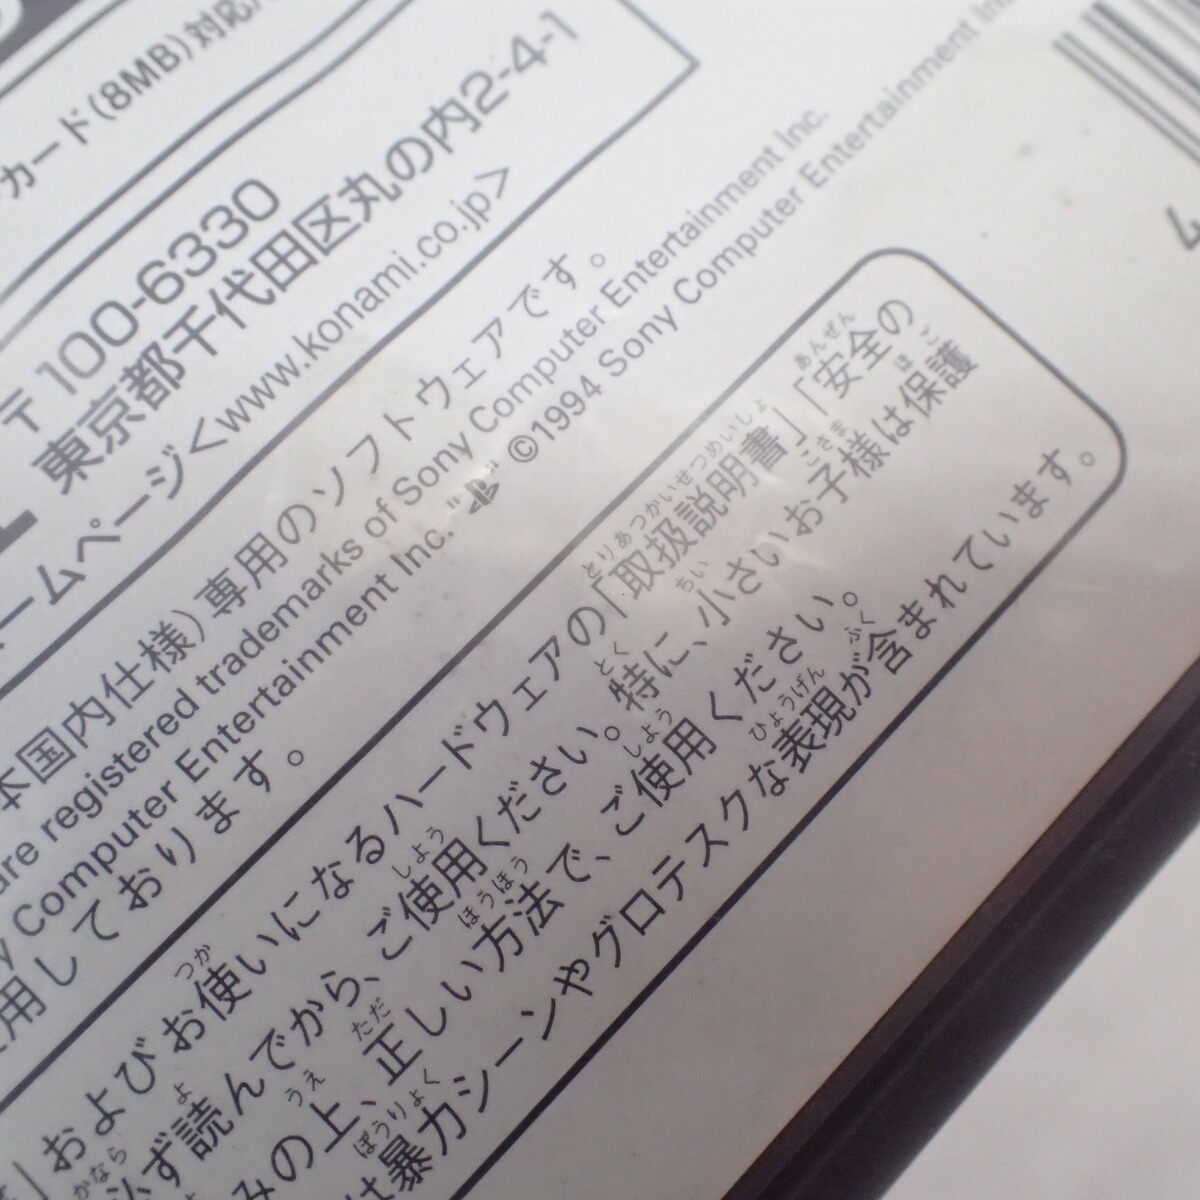 カード(8MB)対応
〒100-6330
東京都千代田区丸の内2-4-1
ームページ<www.konami.co.jp>
本国内仕様)専用のソフトウェアです。
are registered trademarks of Sony Computer Entertainment Inc.
Computer Entertainment Inc. ©1994 Sony Computer Entertainment Inc.
用しております。
およびお使いになるハードウェアの「取扱説明書」「安全の
つか とりあつかいせつめいしょ あんぜん
ず読んでから、ご使用ください。特に、小さいお子様は保護
かなら よ しよう とく ちい こさま ほご
みの上、正しい方法で、ご使用ください。
うえ ただ ほうほう しよう
は暴力シーンやグロテスクな表現が含まれています。
ぼうりょく ひょうげん ふく